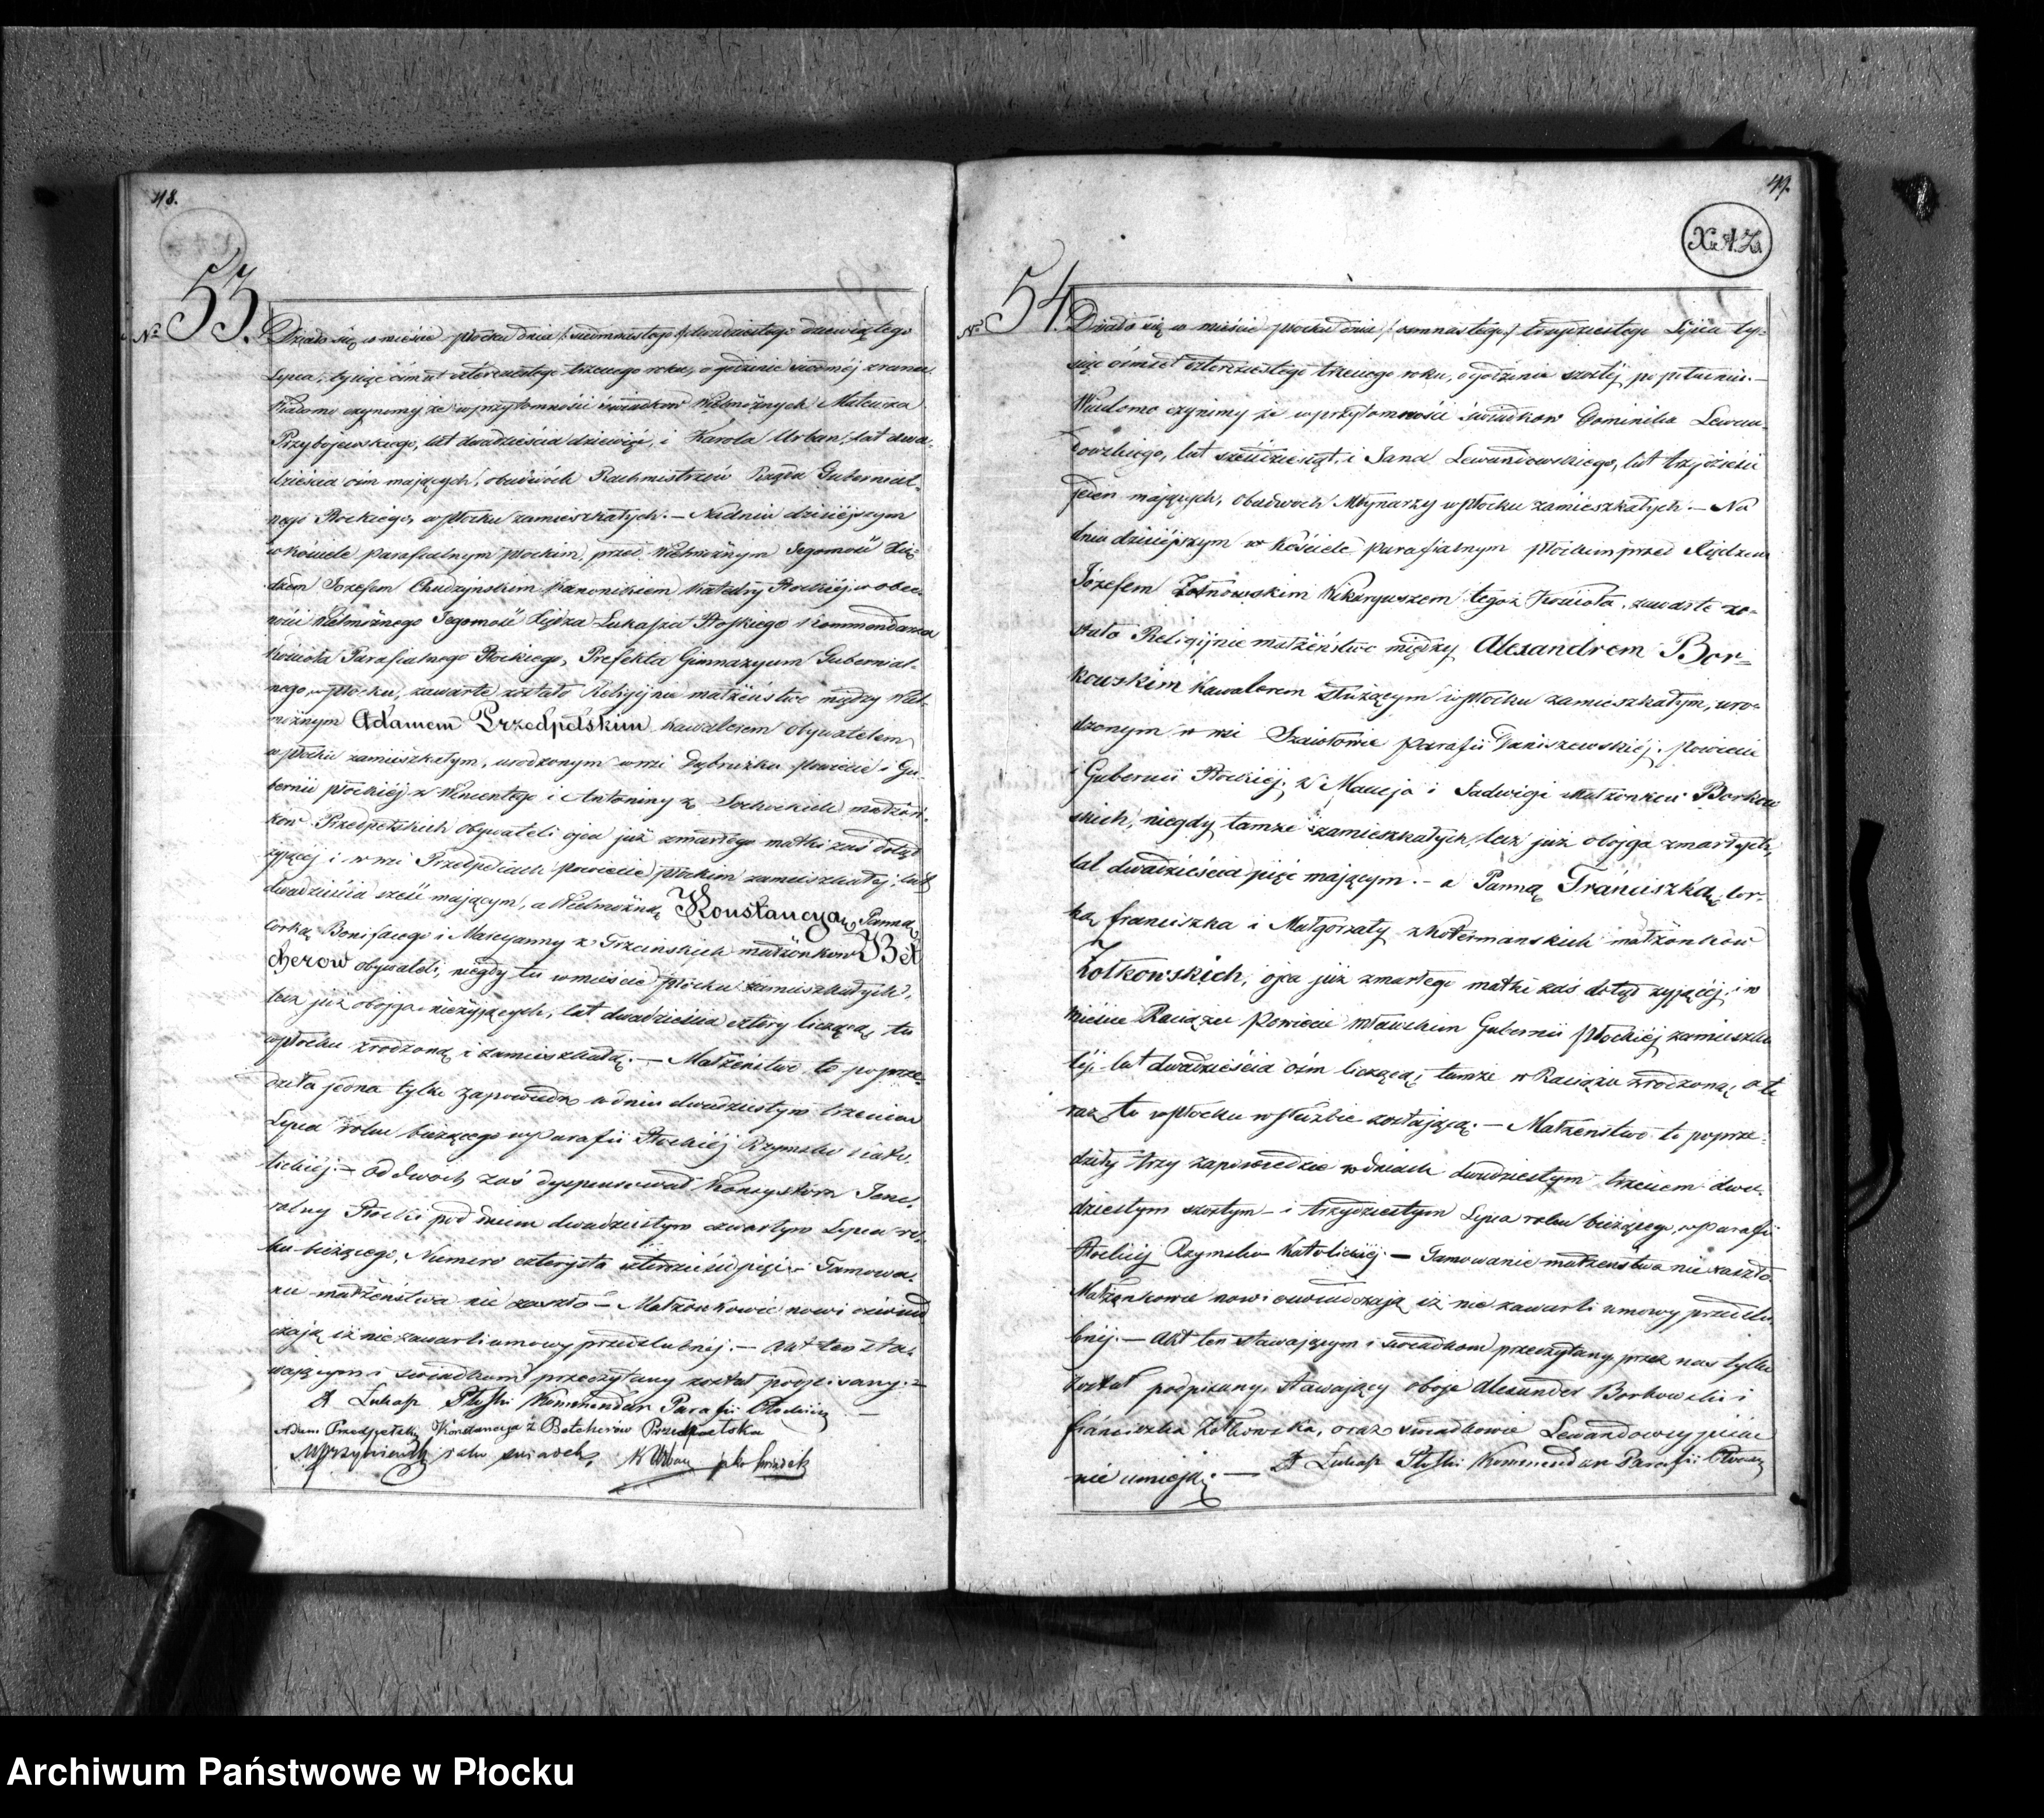 48.
No 53.
Działo się w mieście Płocku dnia /:siedmnastego:/ dwudziestego dziewiątego
Lipca, tysiąc ośmset czterdziestego trzeciego roku, o godzinie siódmej zrana.
Wiadomo czynemy że w przytomności świadków Wielmożnych Mateusza
Przybojewskiego, lat dwadzieścia dziewięć, i Karola Urban, lat dwa-
dzieścia ośm mających, obudwóch Rachmistrzów Rządu Gubernial-
nego Płockiego, w Płocku zamieszkałych. — Na dniu dzisiéjszym
w kościele parafialnym płockim, przed Wielmożnym Jegomość Xię-
dzem Jozefem Chudzyńskim Kanonikiem Katedry Płockiéj, w obec-
ności Wielmożnego Jegomość Xiędza Łukasza Kommendarza
Kościoła Parafialnego Płockiego, Prefekta Gimnazyum Gubernial-
nego w Płocku, zawarte zostało Religijnie małżeństwo między Wiel-
możnym Adamem Przedpełskim kawalerem obywatelem
w Płocku zamieszkałym, urodzonym w wsi Dąbrusku powiecie i Gu-
bernii płockiéj z Wincentego i Antoniny z Sochockich małżon-
ków Przedpełskich obywateli ojca już zmarłego matki zaś dotąd
żyjącéj i w wsi Przedpełcach powiecie płockim zamieszkałéj, lat
dwadzieścia sześć mającym, a Wielmożną Konstancyą Panną,
córką Bonifacego i Maryanny z Trzcińskich małżonków Bet
cherow obywateli, niegdy tu w mieście Płocku zamieszkałych,
lecz już obojga nieżyjących, lat dwadzieścia cztery liczącą, tu
w Płocku zrodzoną i zamieszkałą. — Małżeństwo to poprze-
dziła jedna tylko zapowiedź w dniu dwudziestym trzecim
Lipca roku bieżącego w Parafii Płockiéj Rzymsko Kato-
lickiéj. — Od dwóch zaś dyspensował Konsystorz Jene-
ralny Płocki pod dniem dwudziestym czwartym Lipca ro-
ku bieżącego, Numero czterysta czterdzieści pięć. — Tamowa-
nie małżeństwa nie zaszło — Małżonkowie nowi oświad
czają iż nie zawarli umowy przedślubnéj. — Akt ten sta-
wającym i świadkom przeczytany został podpisany. —
X Łukasz Kommendarz Parafii Płockiéj —
Adam Przedpełski Konstancya z Betcherow Przedpełska
jako świadek, K Urban jako świadek
49.
X. Ł. Z.
No 54.
Działo się w mieście płocku dnia /:osmnastego:/ trzydziestego Lipca ty-
siąc ośmset czterdziestego trzeciego roku, o godzinie szostéj po południu. —
Wiadomo czynimy że w przytomności świadków Dominika Lewan-
dowskiego, lat sześćdziesiąt, i Jana Lewandowskiego, lat trzydzieści
jeden mających, obudwóch Młynarzy w płocku zamieszkałych. — Na
dniu dzisiéjszym w kościele parafialnym płockim przed Xiędzem
Józefem Żołnowskim Wikaryuszem tegoż Kościoła, zawarte zo-
stało Religijnie małżeństwo między Alexandrem Bor=
kowskim Kawalerem służącym w płocku zamieszkałym, uro-
dzonym w wsi parafii Daniszewskiéj, powiecie
i Gubernii Płockiéj, z Macieja i Jadwigi małżonków Borkow
skich, niegdy tamże zamieszkałych, lecz już obojga zmarłych,
lat dwadzieścia pięć mającym. — a Panną Franciszką, cor-
ką franciszka i Małgorzaty z małżonków
Żołkowskich, ojca już zmarłego matki zaś dotąd żyjącéj, i w
mieście Raciążu Powiecie mławskim Gubernii płockiéj zamieszka
łéj, lat dwadzieścia ośm liczącą, tamże w Raciążu zrodzoną, a te
raz tu w płocku w służbie zostającą. — Małżeństwo to poprze-
dziły trzy zapowiedzie w dniach dwudziestym trzeciem dwu-
dziestym szostym — i trzydziestym Lipca roku bieżącego, w parafii
Płockiéj Rzymsko Katolickiéj. — Tamowanie małżeństwa nie zaszło
Małżonkowie nowi oświadczają iż nie zawarli umowy przedślu
bnéj. — Akt ten stawającym i świadkom przeczytany, przez nas tylko
został podpisany, stawający oboje Alexander Borkowski i
franciszka Żołkowska, oraz świadkowie Lewandowscy pisać
nie umieją. — X Łukasz Kommendarz Parafii
Archiwum Państwowe w Płocku